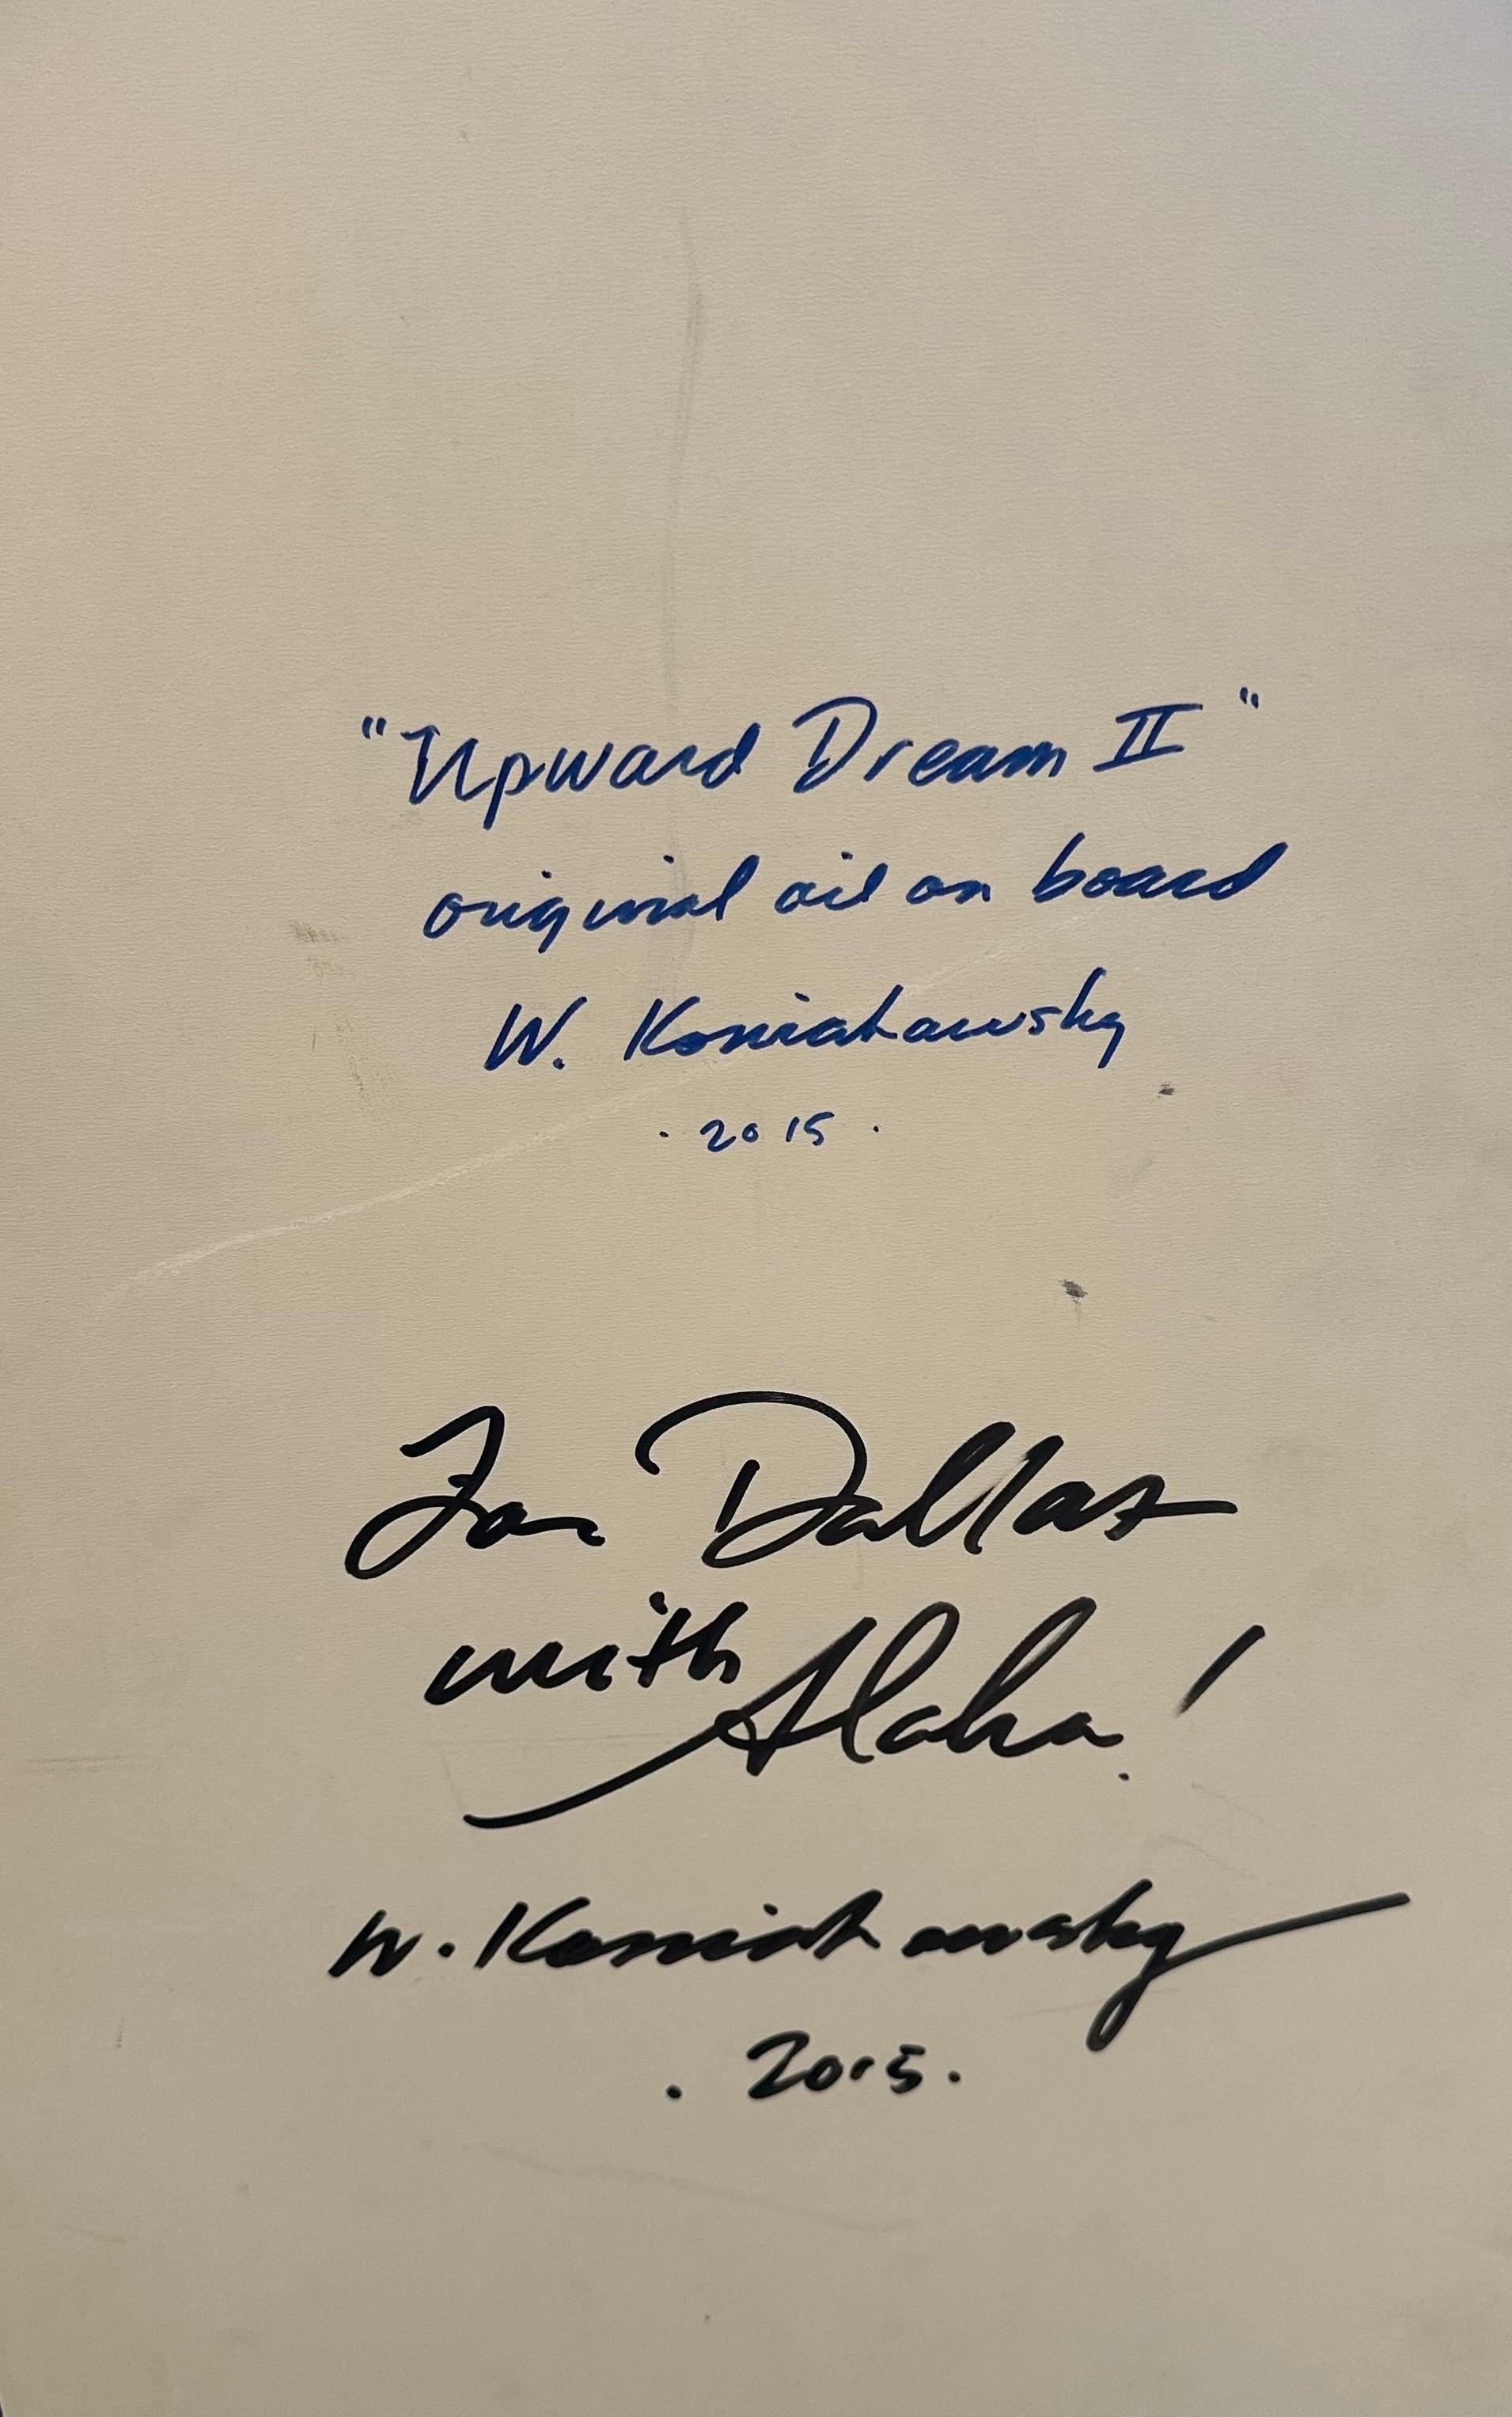 "Upward Dream II"
original oil on board
W. Koniakowsky
. 2015 .
For Dallas
with Aloha!
W. Koniakowsky
. 2015 .